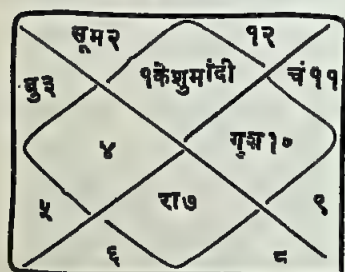 सूम२ १२
बु३ १केशुमांदी चं११
४ गुश१०
५ रा७ ९
६ ८